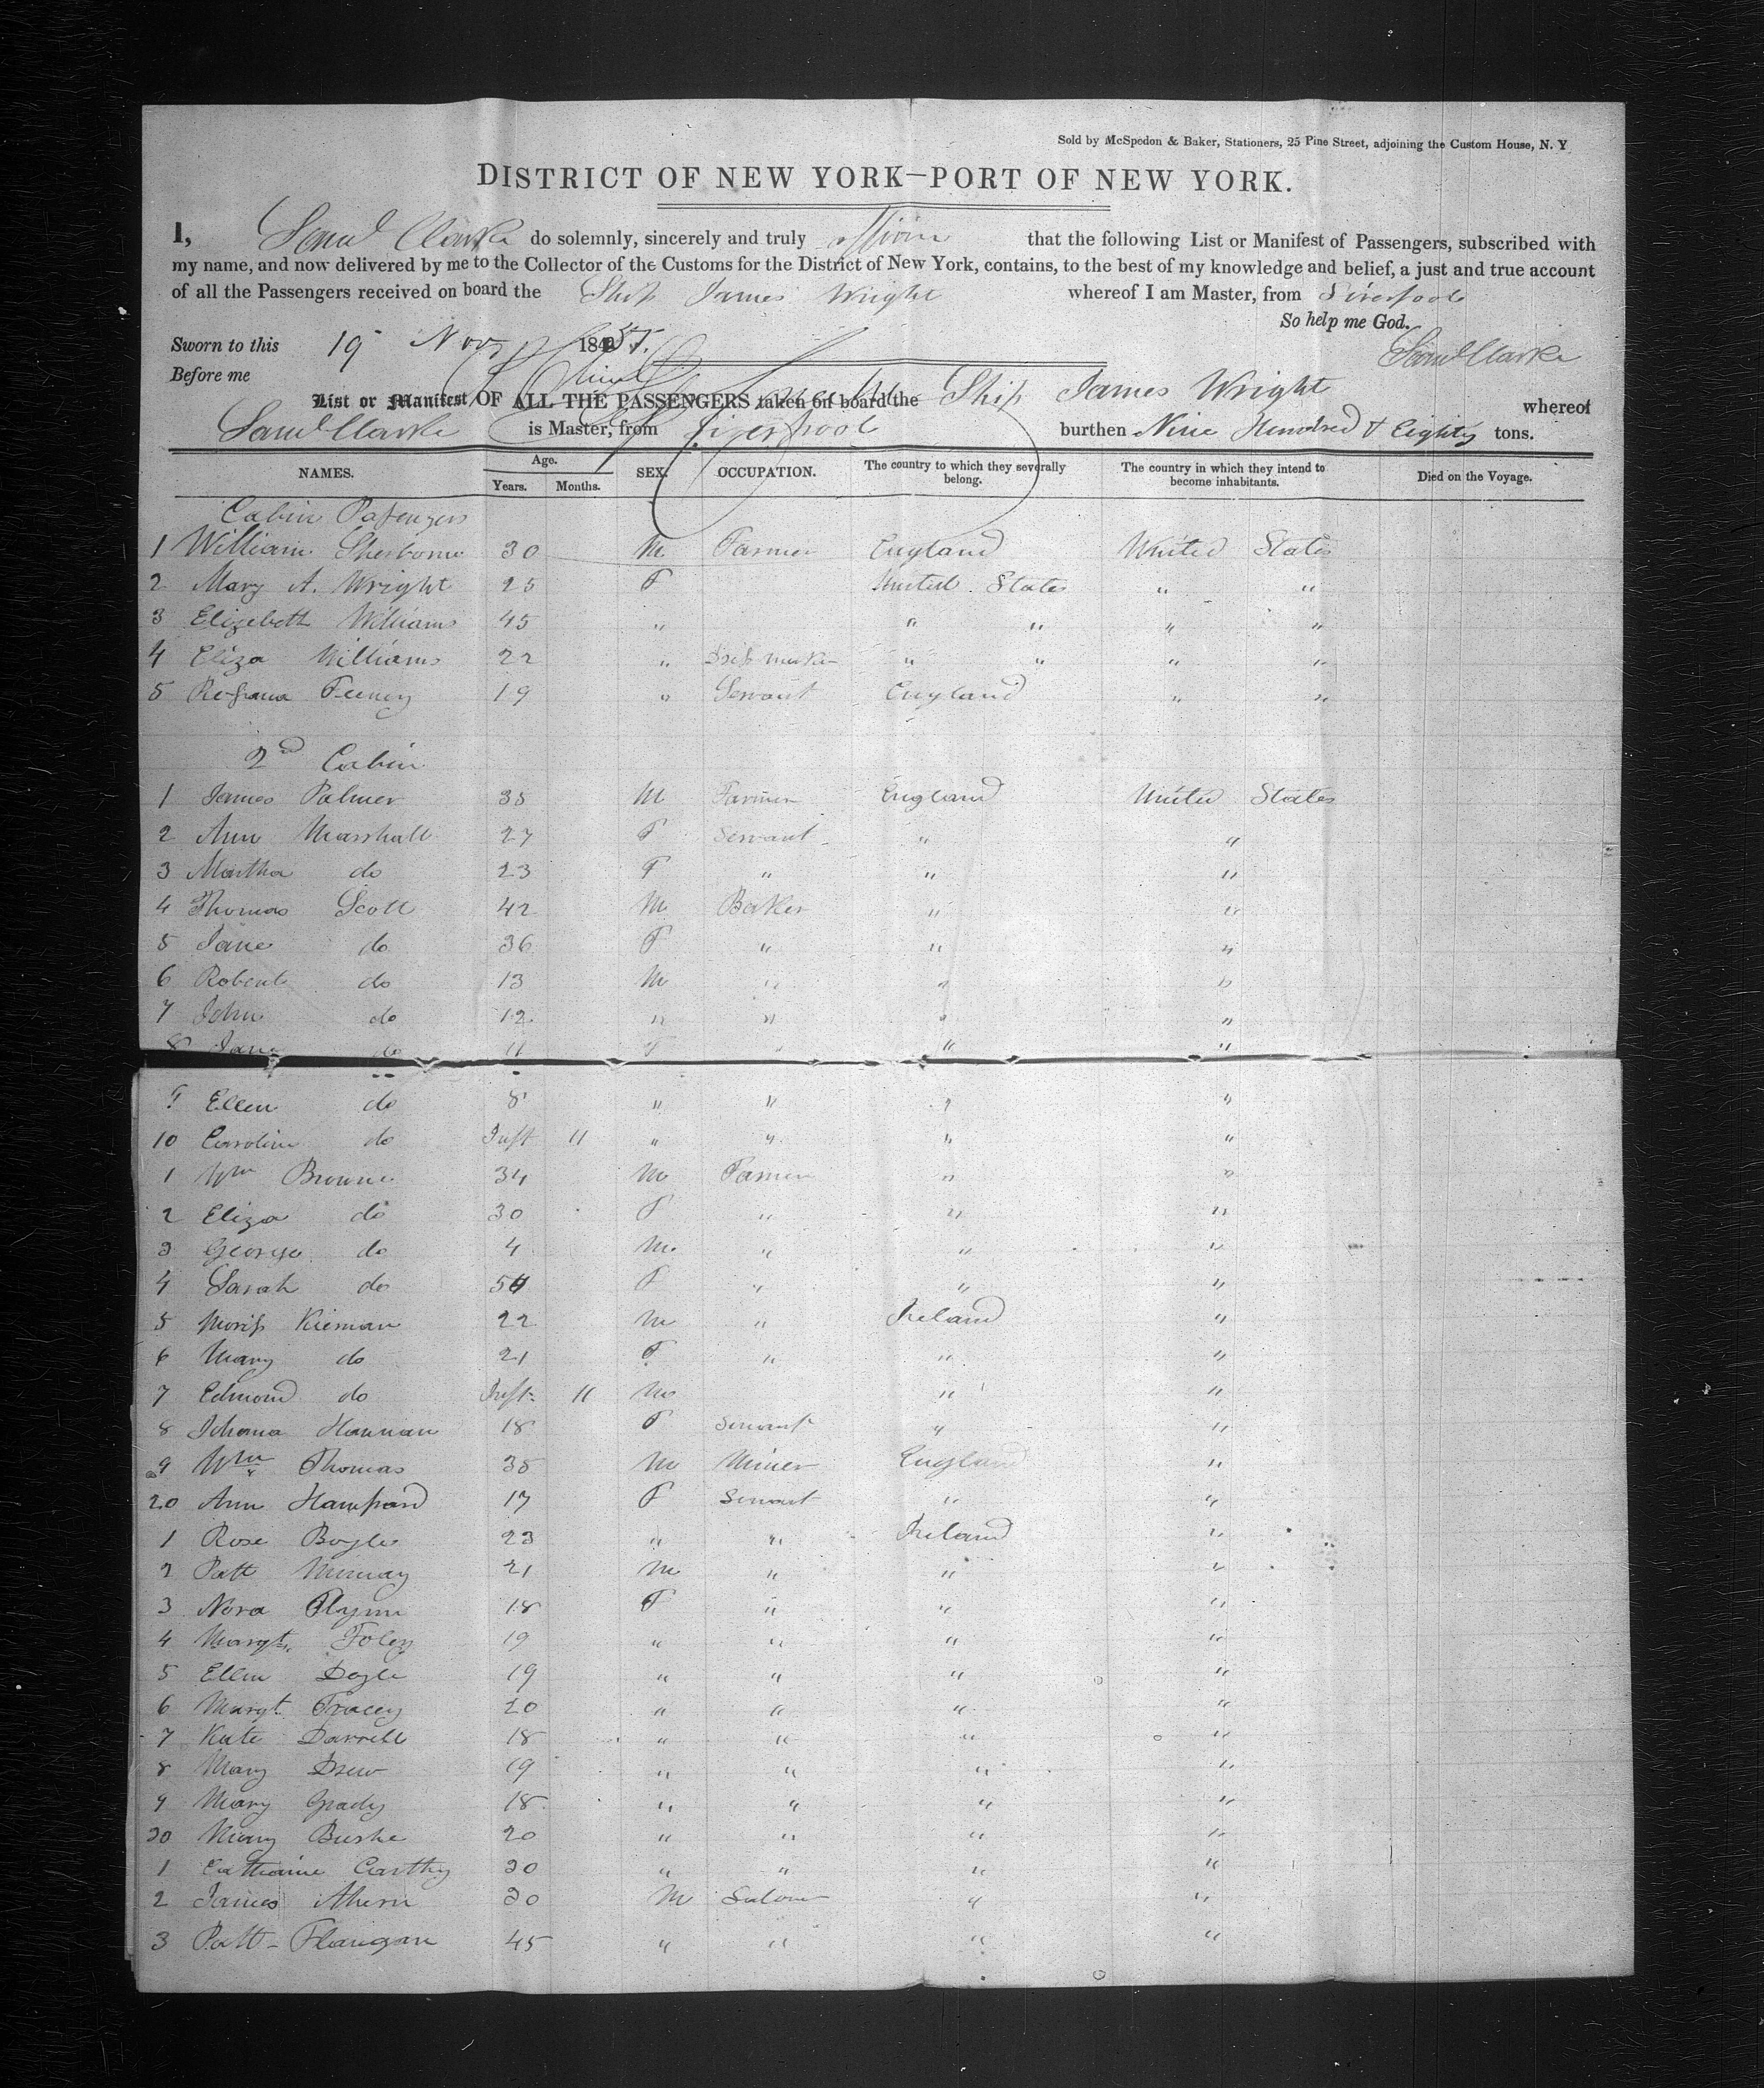 Sold by McSpedon & Baker, Stationers, 25 Pine Street, adjoining the Custom House, N. Y
DISTRICT OF NEW YORK—PORT OF NEW YORK.
I, Saml Clarke do solemnly, sincerely and truly affirm that the following List or Manifest of Passengers, subscribed with
my name, and now delivered by me to the Collector of the Customs for the District of New York, contains, to the best of my knowledge and belief, a just and true account
of all the Passengers received on board the Ship James Wright whereof I am Master, from Liverpool
So help me God.
Sworn to this 19 Nov 184 Saml Clarke
Before me
List or Manifest OF ALL THE PASSENGERS taken on board the Ship James Wright whereof
Saml Clarke is Master, from Liverpool burthen Nine Hundred & Eighty tons.
NAMES. Age. Years. Months. SEX. OCCUPATION. The country to which they severally belong. The country in which they intend to become inhabitants. Died on the Voyage.
Cabin Passengers
1 William Sherborne 30 M Farmer England United States
2 Mary A. Wright 25 F United States " "
3 Elizebeth Williams 45 " " " " "
4 Eliza Williams 22 " Dress maker " " " "
5 Feeney 19 " Servant England " "
2nd Cabin
1 James Palmer 35 M Farmer England United States
2 Ann Marshall 27 F Servant " "
3 Martha do 23 F " " "
4 Thomas Scott 42 M Baker " "
5 Jane do 36 F " " "
6 Robert do 13 M " " "
7 John do 12 " " " "
8 Jane do 11 F " " "
9 Ellen do 8 " " " "
10 Caroline do Inft 11 " " " "
1 Wm Browne 34 M Farmer " "
2 Eliza do 30 F " " "
3 George do 4 M " " "
4 Sarah do F " " "
5 Kiernan 22 M " Ireland "
6 Mary do 21 F " " "
7 Edmond do Inft 11 M " "
8 Johana Hannan 18 F Servant " "
9 Wm Thomas 35 M Miner England "
20 Ann 17 F Servant " "
1 Rose Boyle 23 " " Ireland "
2 Patt Murray 21 M " " "
3 Nora Flynn 18 F " " "
4 Margt Foley 19 " " " "
5 Ellen Doyle 19 " " " "
6 Margt Tracey 20 " " " "
7 Kate Darrell 18 " " " "
8 Mary Drew 19 " " " "
9 Mary Grady 18 " " " "
30 Mary Burke 20 " " " "
1 Catharine Carthy 30 " " " "
2 James Ahern 30 M " "
3 Patt Flanigan 45 " " " "